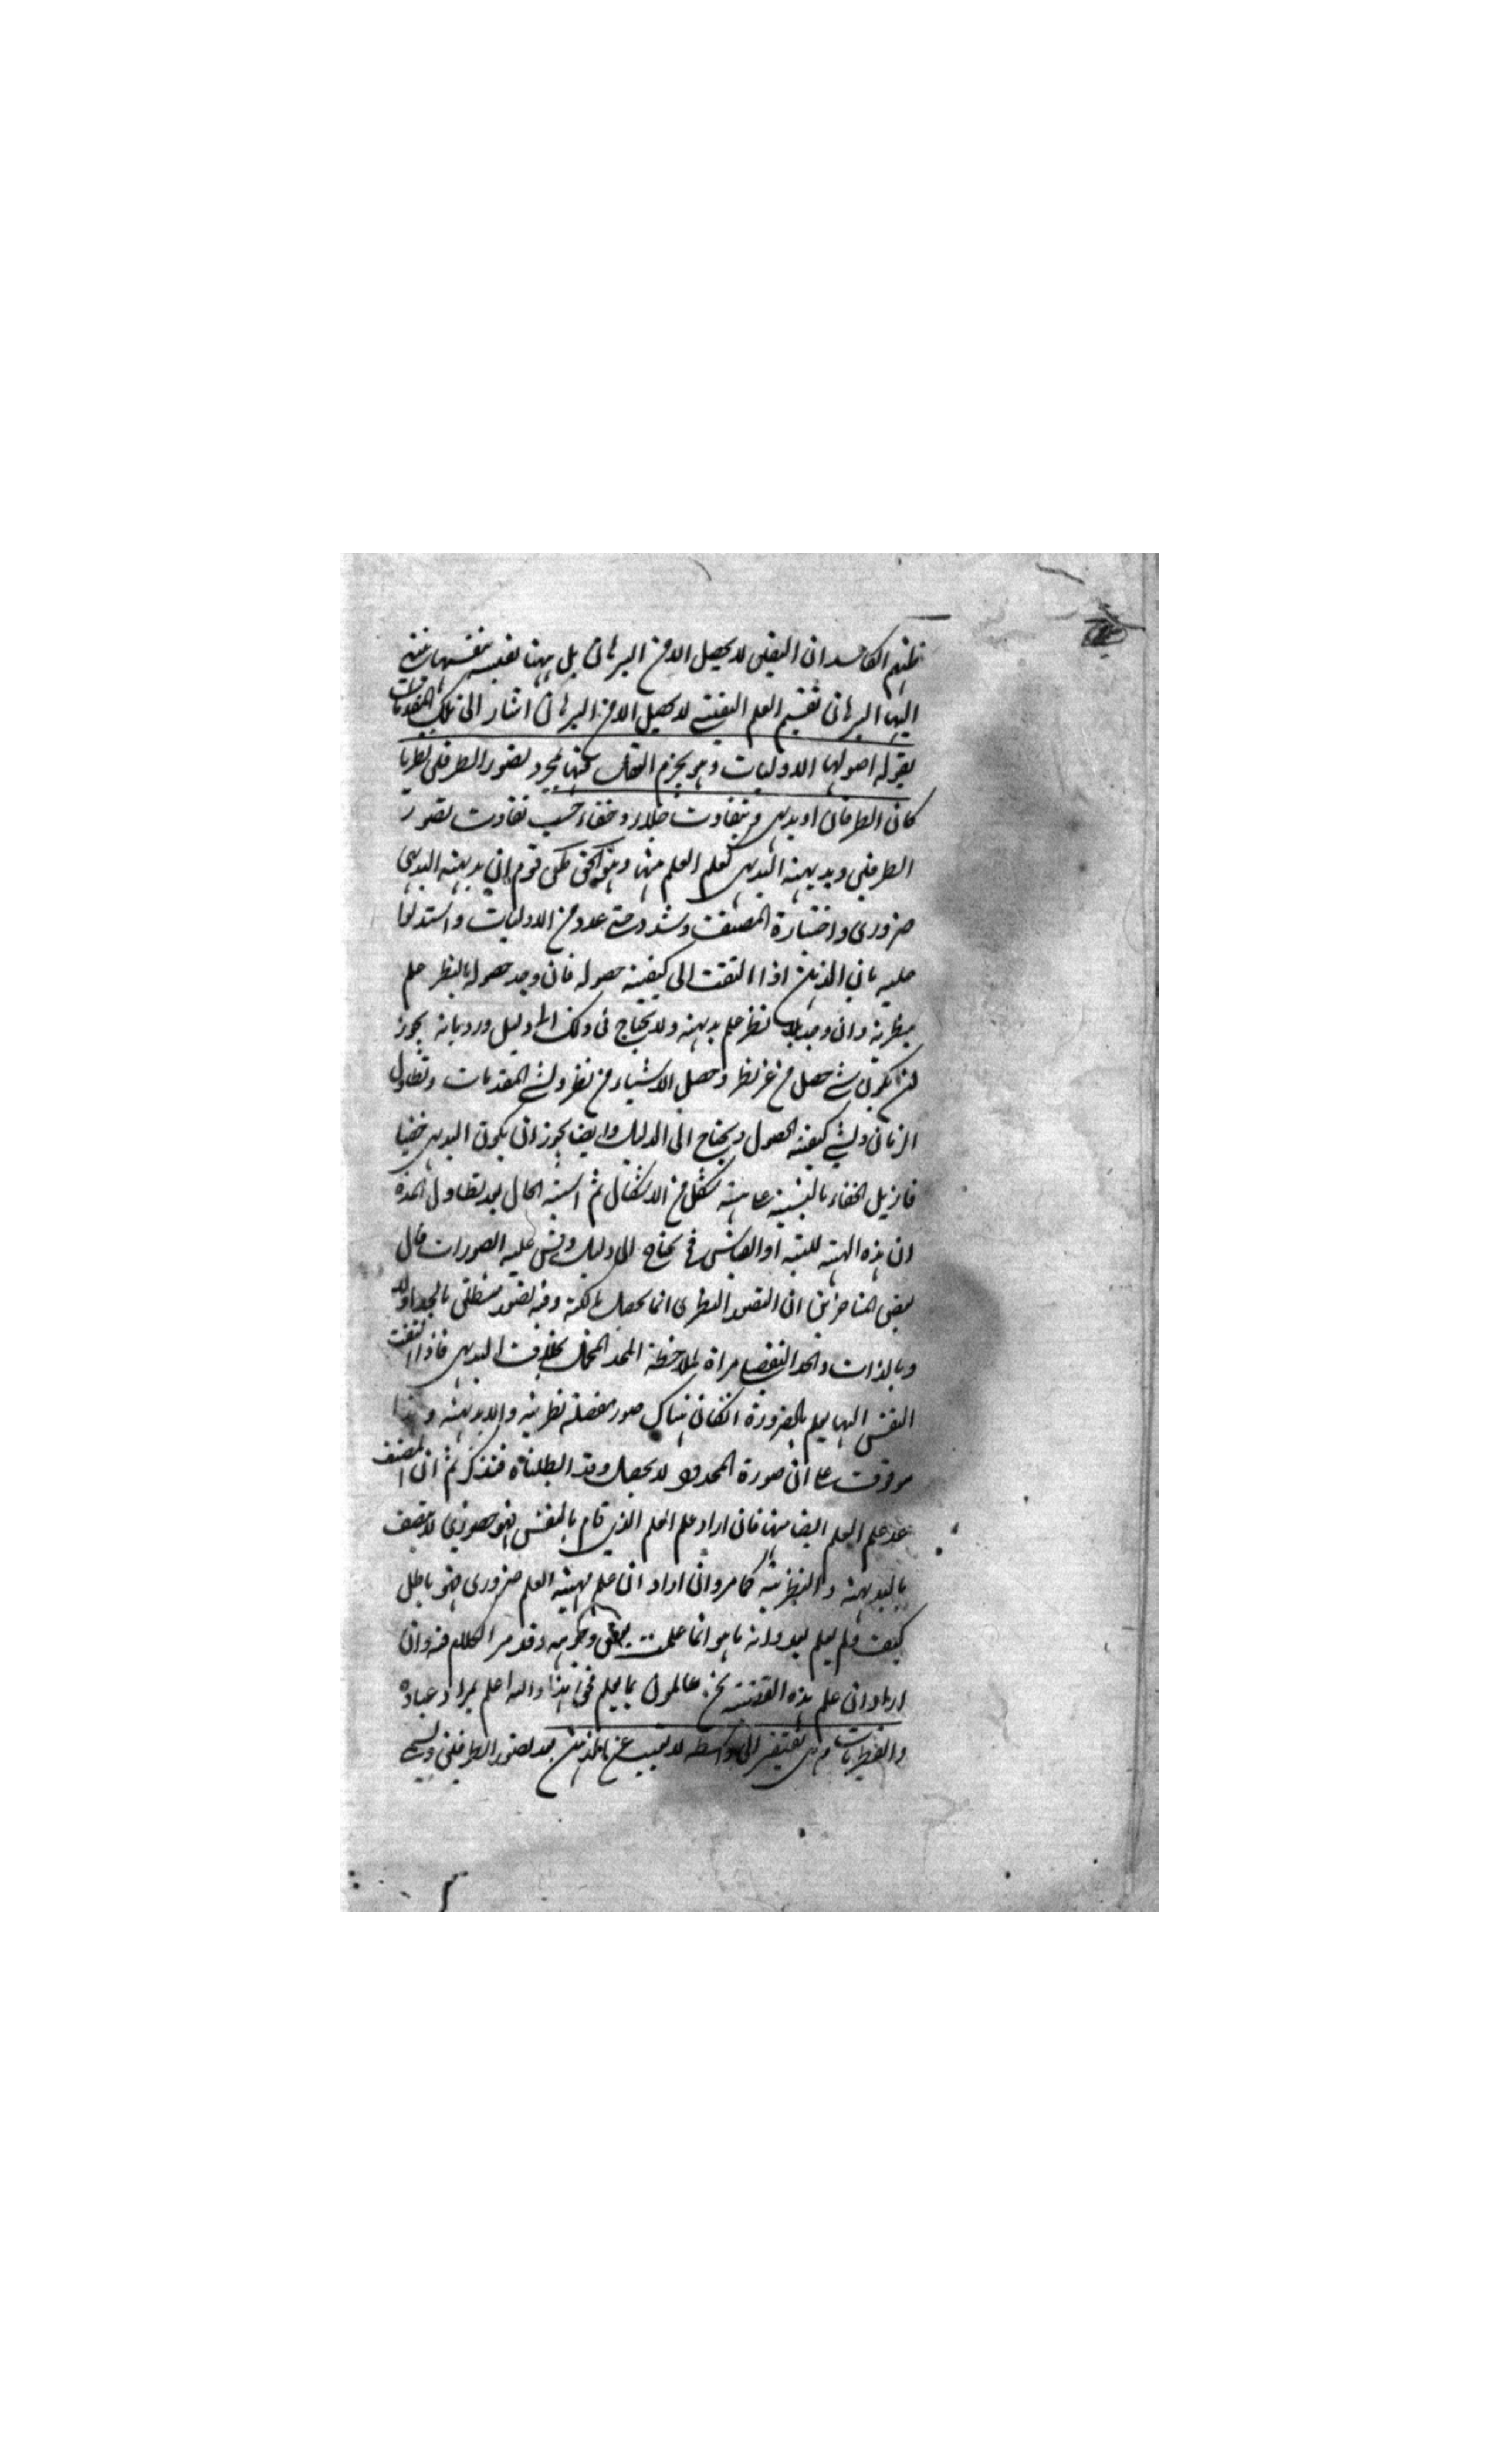 ظنهم الكاسد ان اليقيني لا يحصل الا من البرهان بل ههنا يقينية بنفسها منتهى
اليها البرهان تقسيم العلم اليقيني لا يحصل الا من البرهان اشار الى تلك المقدمات
بقوله اصولها الاوليات وهو يجزم العقل فيها بمجرد تصور الطرفين نظريا
كان الطرفان او بديهي ويتفاوت جلاء وخفاء حسب تفاوت تصور
الطرفين وبديهية البديهي كعلم العلم منها وهو الحق حكى قوم ان بديهية البديهي
ضروري واختاره المصنف وشدد حتى عده من الاوليات واستدلوا
عليه بان الذهن اذا التفت الى كيفية حصوله فان وجد حصوله بالنظر علم
نظريته وان وجد بلا نظر علم بديهيته ولا يحتاج في ذلك الى دليل ورد بانه يجوز
ان يكون شيء حصل من غير نظر وحصل الاشياء من نظر ونسي المقدمات وتطاول
الزمان ونسي كيفية الحصول ويحتاج الى الدليل وايضا يجوز ان يكون البديهي خفيا
فازيل الخفاء بالتنبيه على هيئة شكل من الاشكال ثم اشتبه الحال بعد تطاول المدة
ان هذه الهيئة للتنبيه او القياس فيحتاج الى دليل وقس عليه الصورات قال
بعض المتاخرين ان التصور النظري انما يحصل بالكنه وفيه تصور متعلق بالحد اولا
وبالذات والحد التفصيلي مراة لملاحظة المحدود المجمل بخلاف البديهي فاذا التفت
النفس اليها يعلم بالضرورة ان كان هناك صور مفصلة نظرية والا بديهية وهذا
موقوف على ان صورة المحدود لا يحصل وقد ابطلناه فتذكر ثم ان المصنف
عد علم العلم ايضا منها فان اراد علم العلم الذي قام بالنفس فهو حضوري لا يتصف
بالبديهية والنظرية كما مر وان اراد ان علم مهية العلم ضروري فهو باطل
كيف ولم يعلم بعد وانه ما هو انما علمت بعض وجوهه وقد مر الكلام فيه وان
اراد ان علم هذه القضية نحن عالمون بما يعلم فحق هذا والله اعلم بمراد عباده
والفطريات وهي تفتقر الى واسطة لا تغيب عن الذهن بعد تصور الطرفين ويسمى